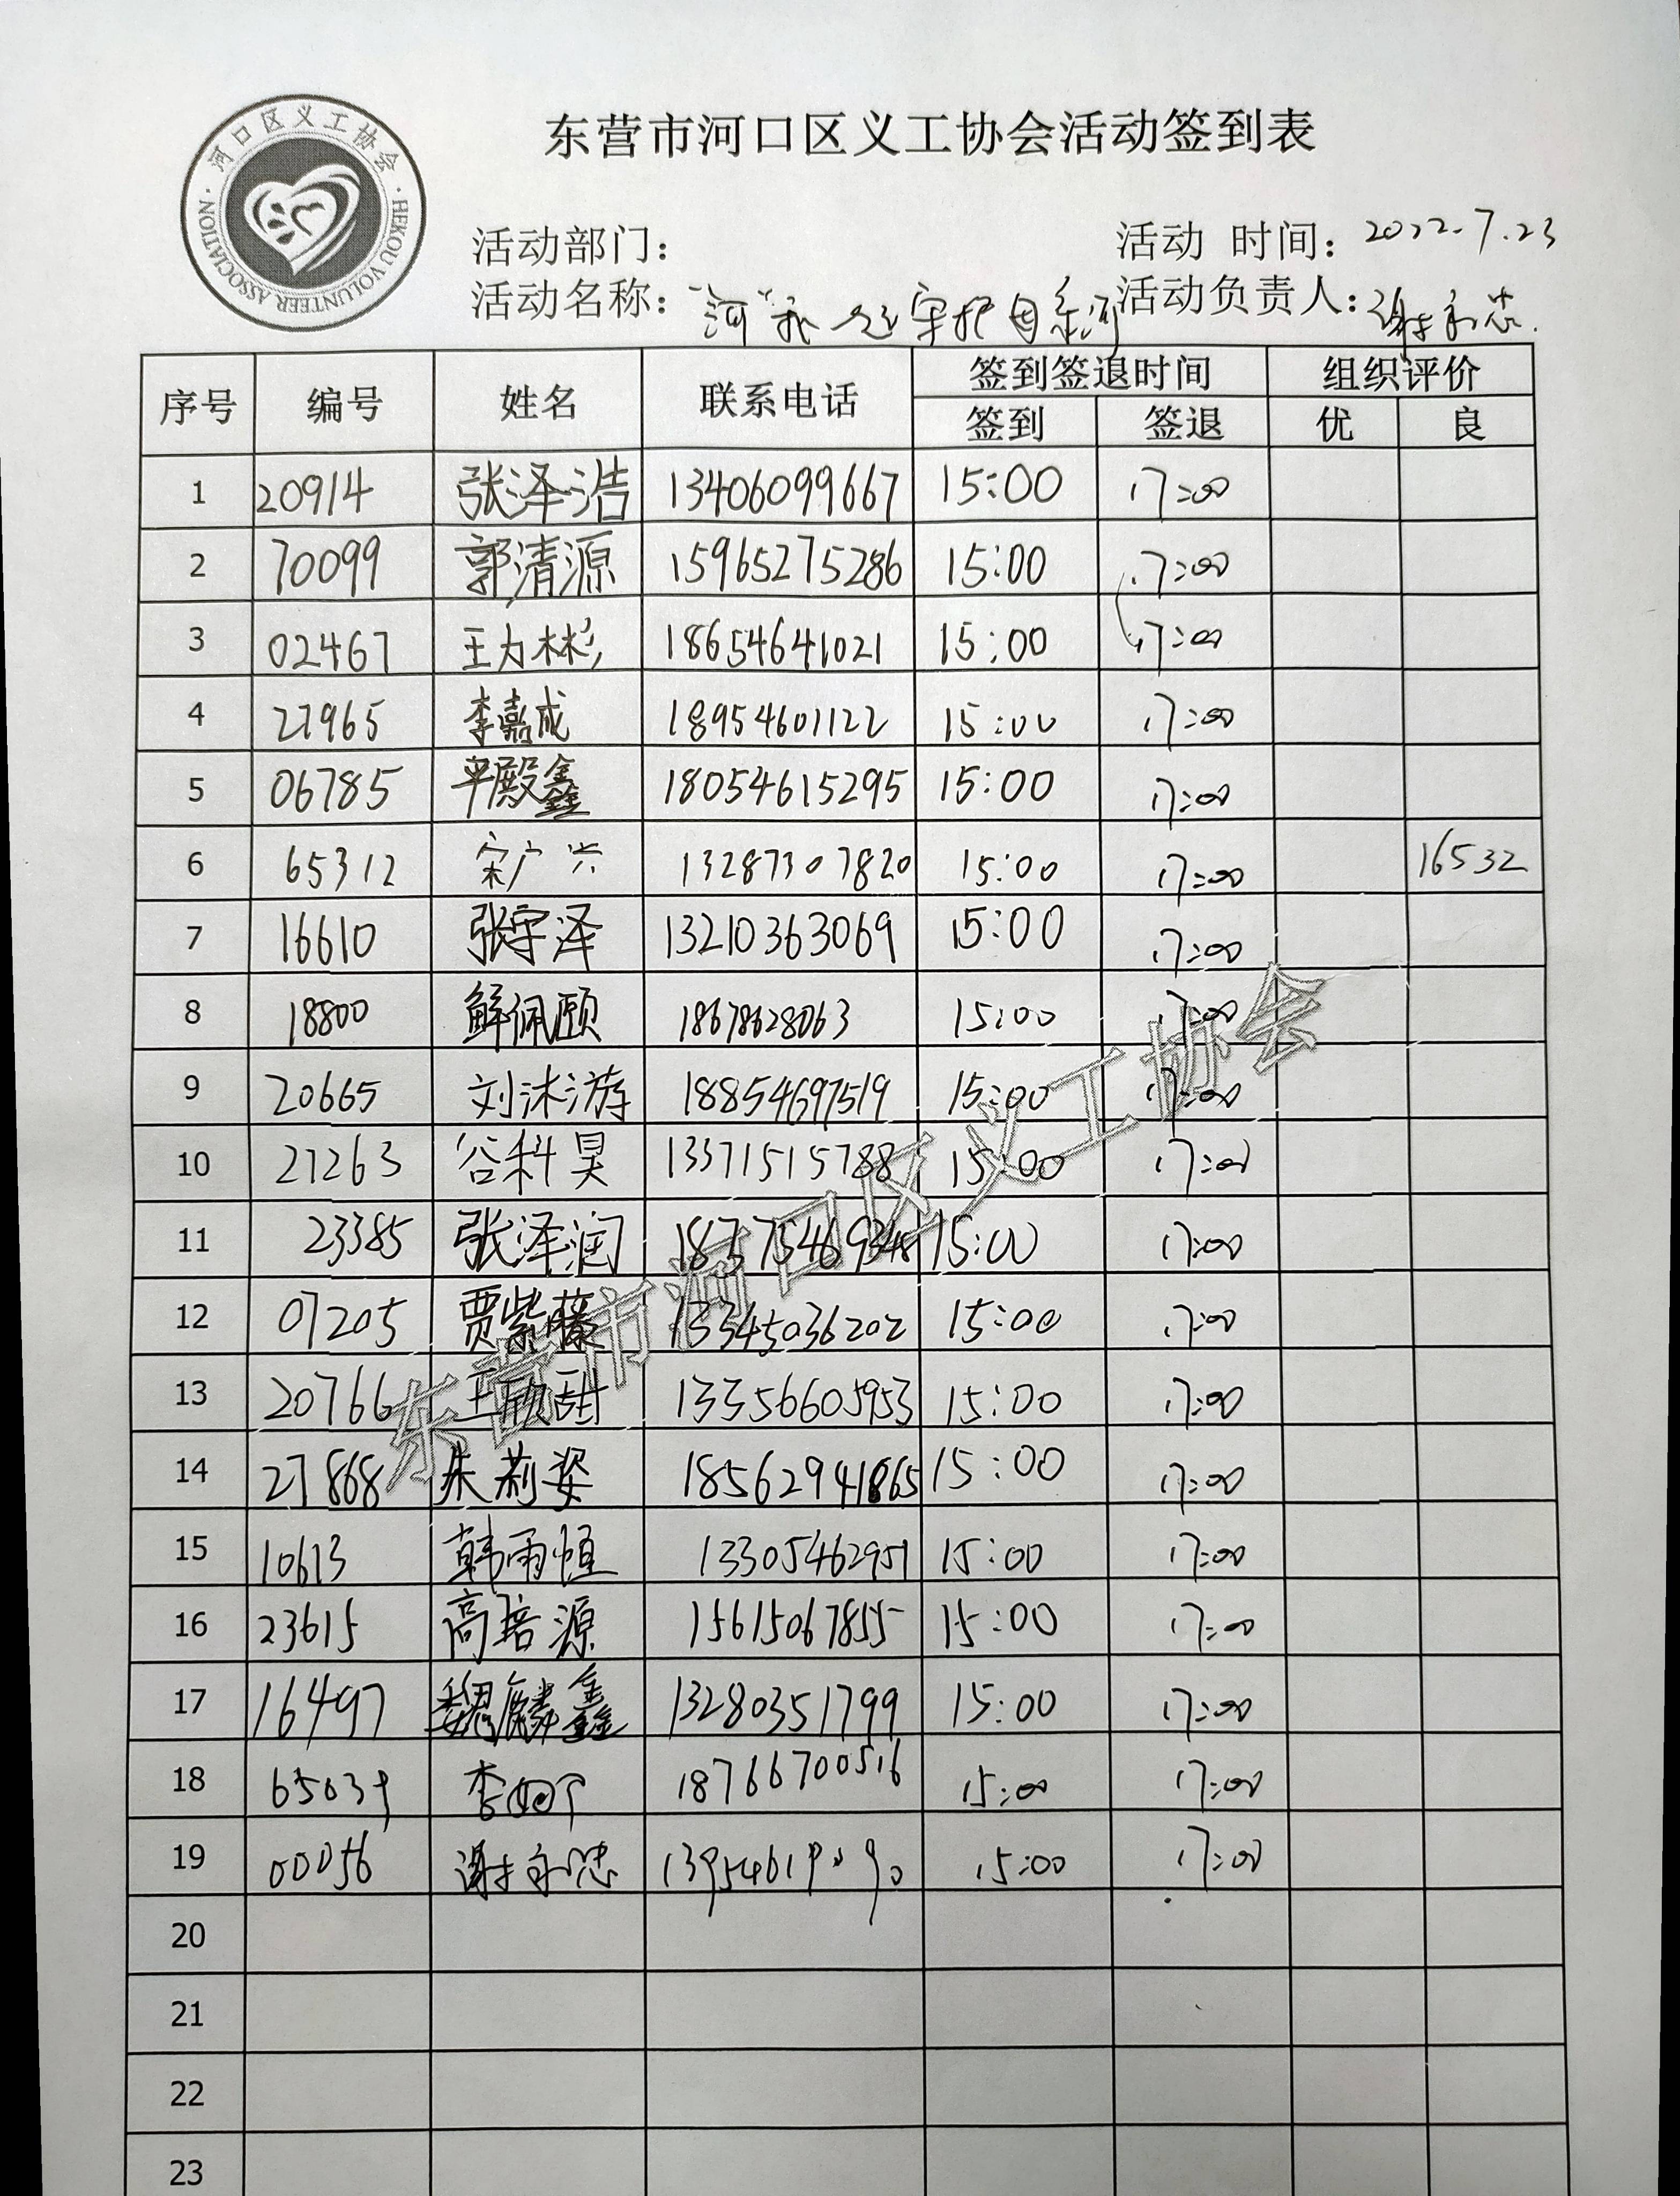 河口区义工协会
HEKOU VOLUNTEER ASSOCIATION
东营市河口区义工协会活动签到表
活动部门： 活动 时间：2022.7.23
活动名称：“河”我一起守护母亲河 活动负责人：谢永忠
序号 编号 姓名 联系电话 签到签退时间 组织评价
签到 签退 优 良
1 20914 张泽浩 13406099667 15:00 17:00
2 70099 郭清源 15965275286 15:00 17:00
3 02467 王力彬 18654641021 15:00 17:00
4 27965 李嘉成 18954601122 15:00 17:00
5 06785 殿鑫 18054615295 15:00 17:00
6 65312 宋广兴 13287307820 15:00 17:00 16532
7 16610 张宇泽 13210363069 15:00 17:00
8 18800 鲜佩颐 18678628063 15:00 17:00
9 20665 刘沐游 18854697519 15:00 17:00
10 27263 谷科昊 13371515788 15:00 17:00
11 23385 张泽润 15:00 17:00
12 07205 贾紫藤 13345036202 15:00 17:00
13 20766 王欣甜 13356605953 15:00 17:00
14 27868 朱莉姿 18562941865 15:00 17:00
15 10613 韩雨恒 13305462951 15:00 17:00
16 23615 高培源 15615067855 15:00 17:00
17 16497 魏麟鑫 13280351799 15:00 17:00
18 65039 李 18766700516 15:00 17:00
19 00056 谢永忠 13954619090 15:00 17:00
20
21
22
23
东营市河口区义工协会